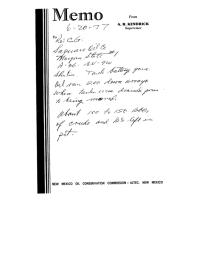 Memo
From
A. R. KENDRICK
Supervisor
6-20-77
To: C.G.
Oil Co
State #1
Tank battery gone.
Oil ran down arroya
when tank was drained prior
to being moved.
About 100 to 150 bbls
of crude and BS left in
pit.
NEW MEXICO OIL CONSERVATION COMMISSION - AZTEC, NEW MEXICO